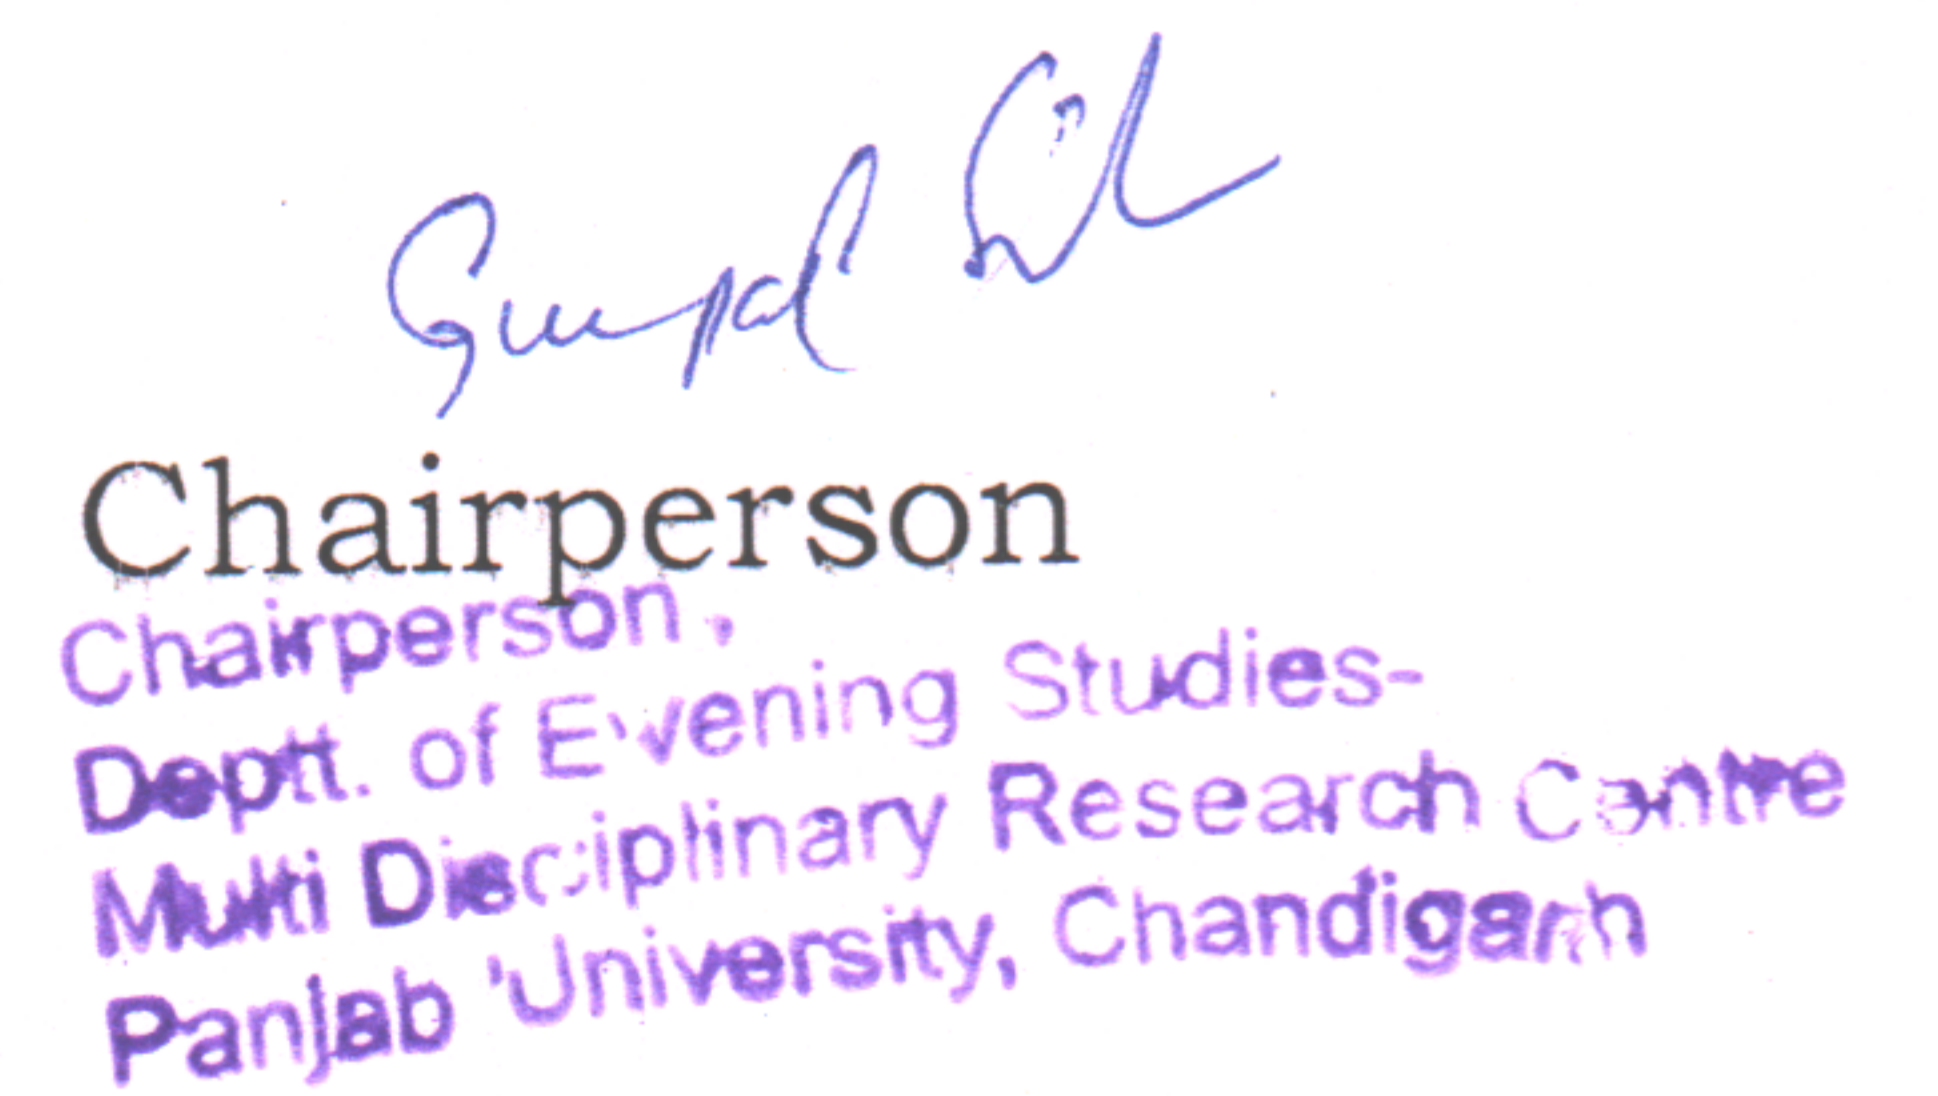 Chairperson
Chairperson,
Deptt. of Evening Studies-
Multi Disciplinary Research Centre
Panjab University, Chandigarh